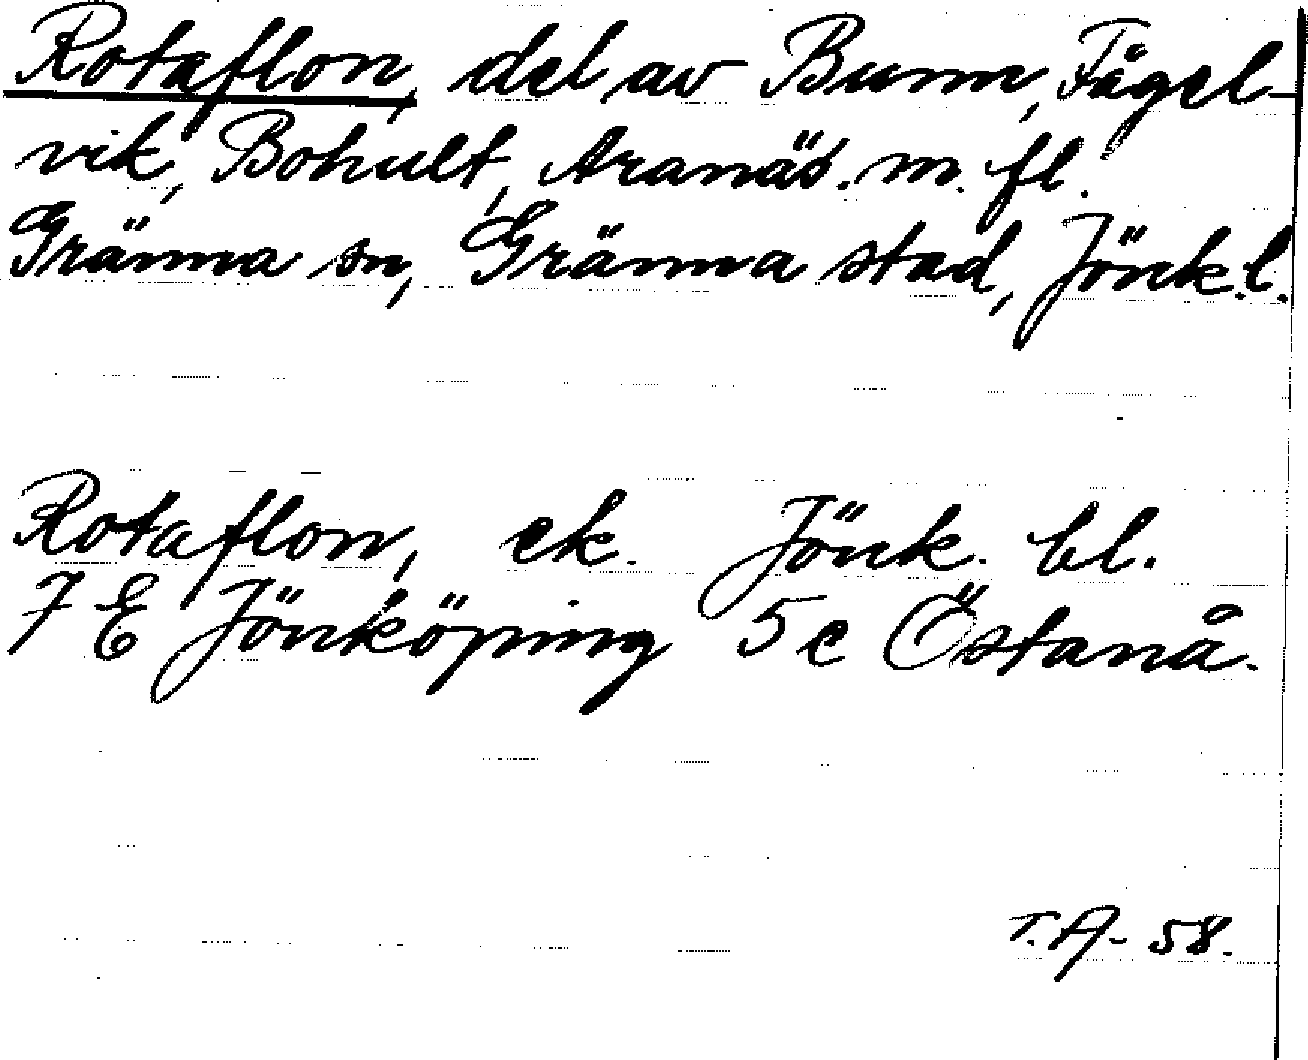 Rotaflon, del av Bunn, Fågel-
vik, Bohult, Aranäs. m. fl.
Gränna sn, Gränna stad, Jönk.l.
Rotaflon, ek. Jönk. bl.
7 E Jönköping 5 c Östanå.
T.A- 58.